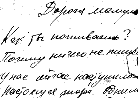 Дорогая мамуся
Как ты поживаешь?
Почему ничего не пишешь
У нас сейчас наступила
настоящая жара.